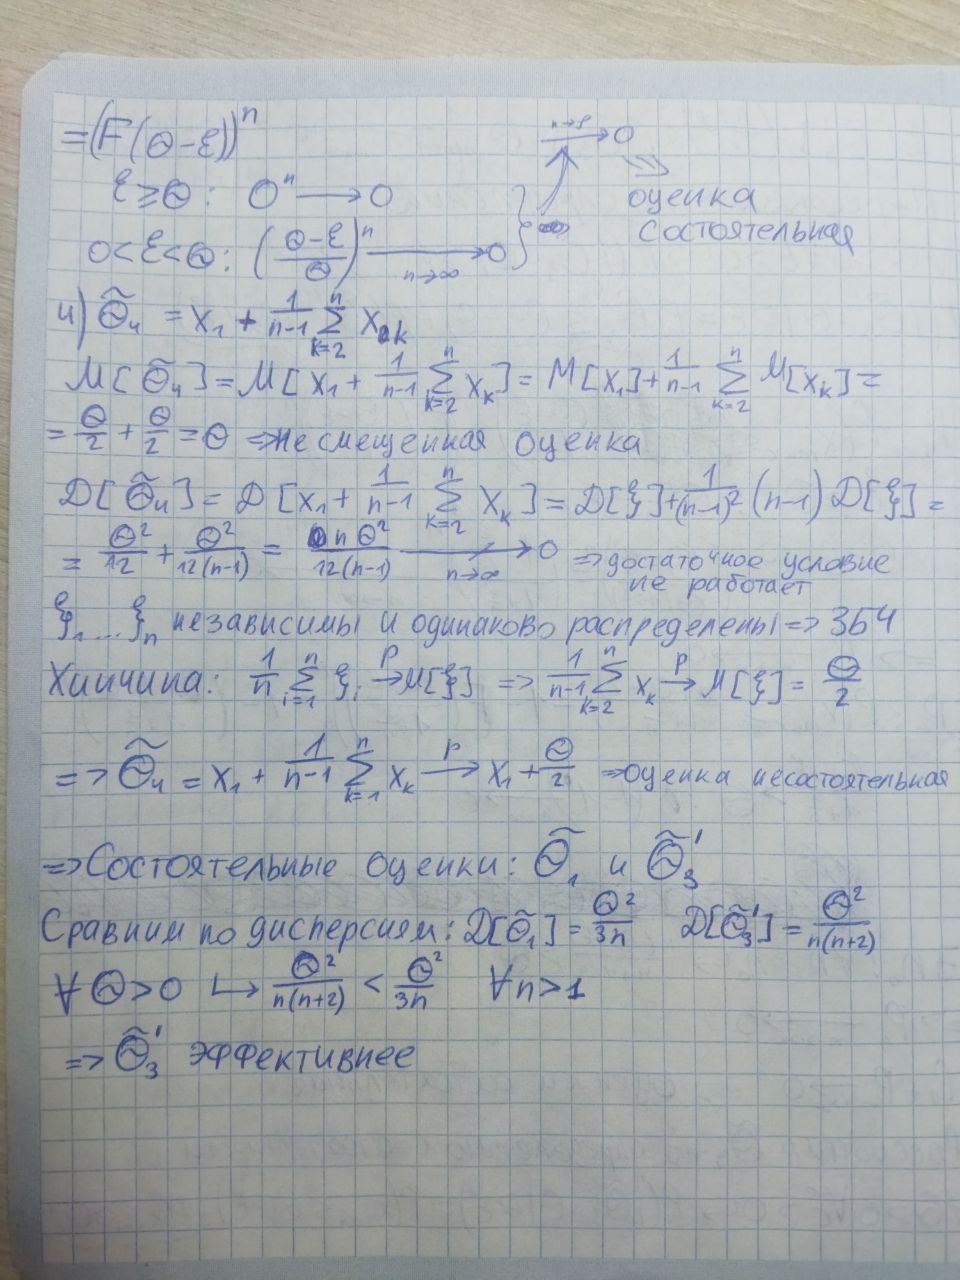 = (F(Θ-ε))ⁿ
n→∞ → 0
ε ≥ Θ: 0ⁿ → 0
⇒ оценка
состоятельная
0<ε<Θ: ((Θ-ε)/Θ)ⁿ → 0 n→∞
4) Θ̃₄ = x₁ + 1/(n-1) Σ_{k=2}^{n} x_k
M[Θ̃₄] = M[x₁ + 1/(n-1) Σ_{k=2}^{n} x_k] = M[x₁] + 1/(n-1) Σ_{k=2}^{n} M[x_k] =
= Θ/2 + Θ/2 = Θ ⇒ несмещенная оценка
D[Θ̃₄] = D[x₁ + 1/(n-1) Σ_{k=2}^{n} x_k] = D[ξ] + 1/(n-1)² (n-1) D[ξ] =
= Θ²/12 + Θ²/(12(n-1)) = nΘ²/(12(n-1)) ↛ 0 n→∞ ⇒ достаточное условие
не работает
ξ₁...ξₙ независимы и одинаково распределены ⇒ ЗБЧ
Хинчина: 1/n Σ_{i=1}^{n} ξᵢ →ᴾ M[ξ] ⇒ 1/(n-1) Σ_{k=2}^{n} x_k →ᴾ M[ξ] = Θ/2
⇒ Θ̃₄ = x₁ + 1/(n-1) Σ_{k=1}^{n} x_k →ᴾ x₁ + Θ/2 ⇒ оценка несостоятельная
⇒ Состоятельные оценки: Θ̃₁ и Θ̃₃'
Сравним по дисперсиям: D[Θ̃₁] = Θ²/3n D[Θ̃₃'] = Θ²/(n(n+2))
∀ Θ>0 ↳ Θ²/(n(n+2)) < Θ²/3n ∀n>1
⇒ Θ̃₃' эффективнее